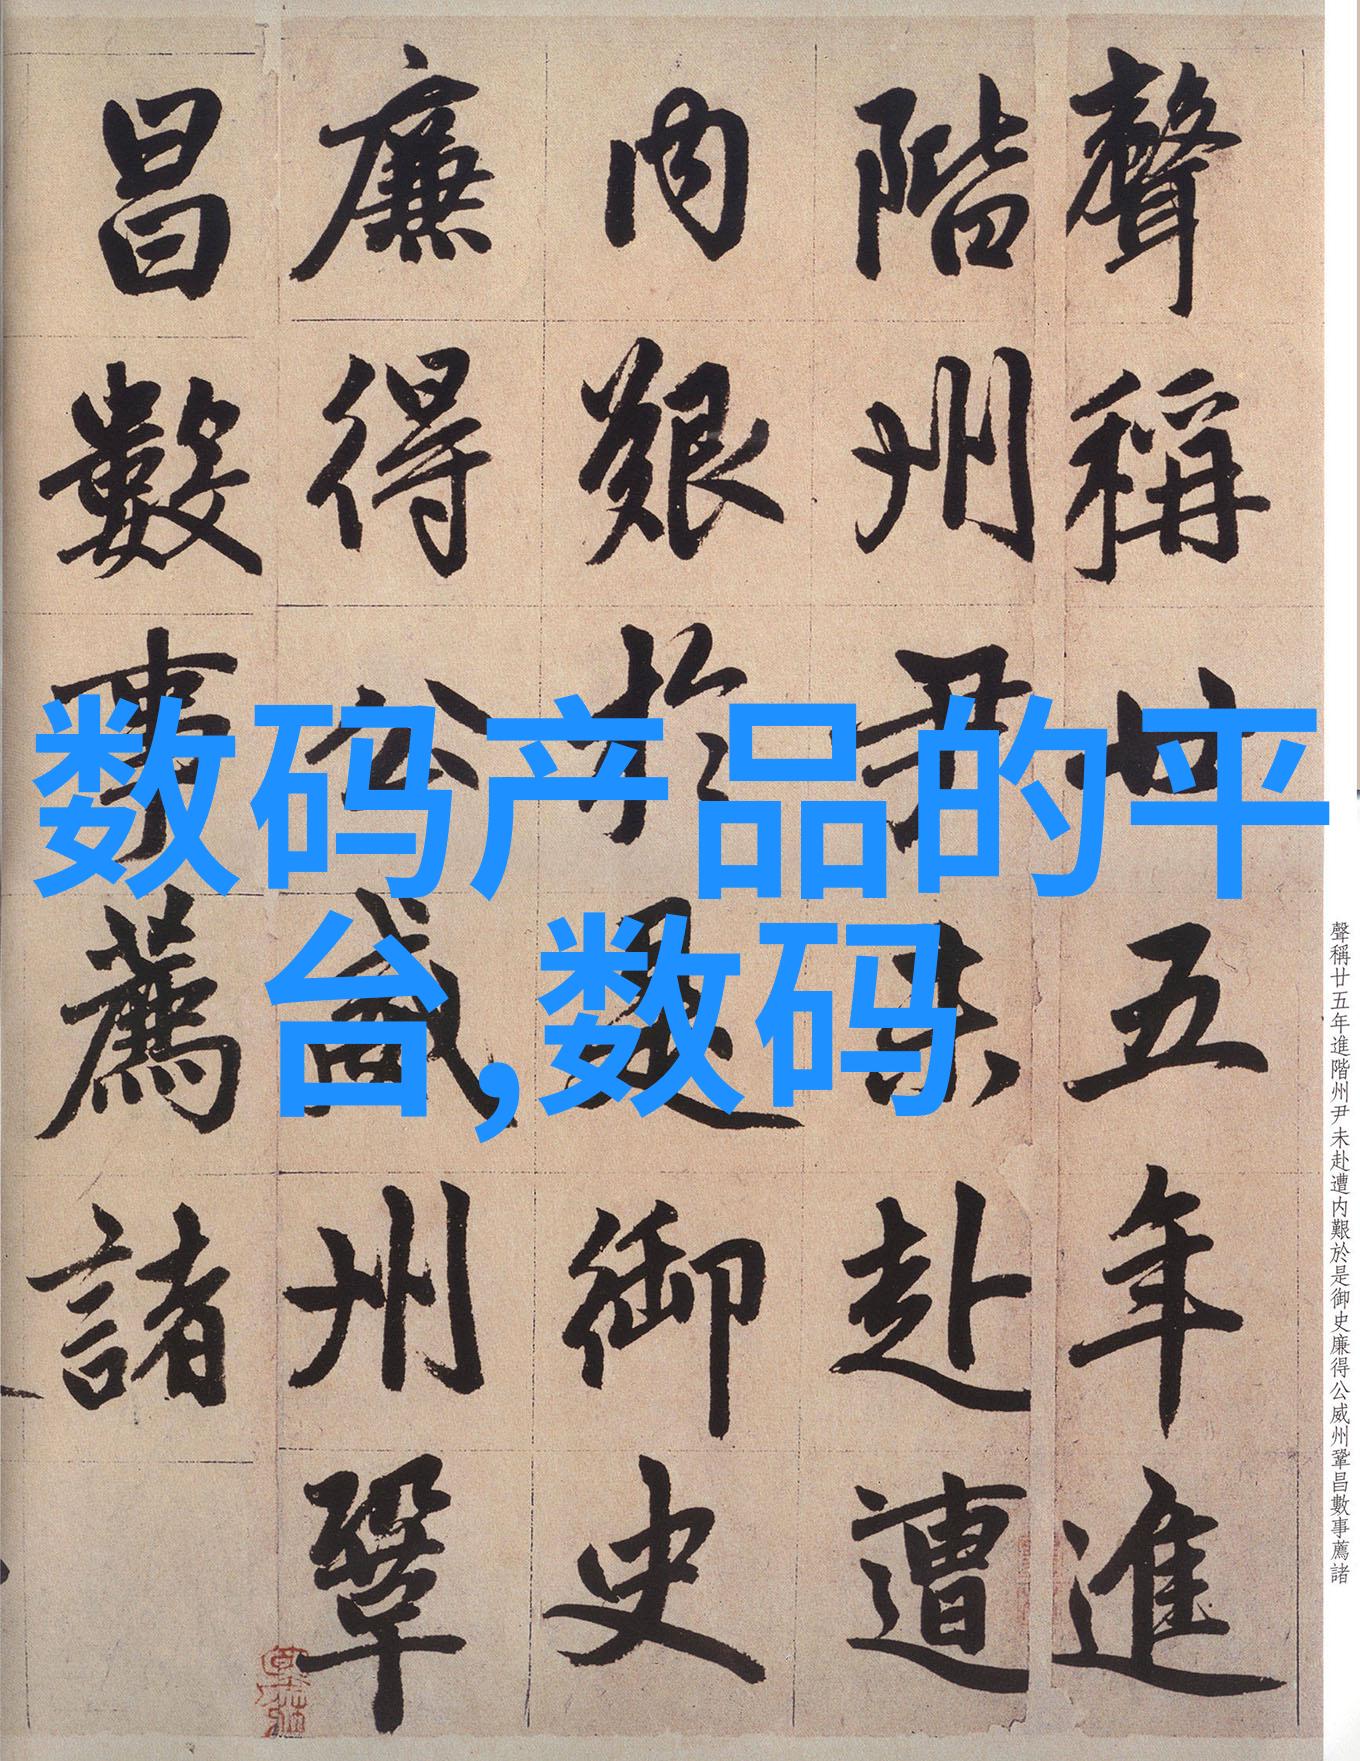 聲稱廿五年進
階州尹未赴遭
内艱於是御史
廉得公威州鞏
昌數事薦諸
数码产品的平
台,数码
聲稱廿五年進階州尹未赴遭内艱於是御史廉得公威州鞏昌數事薦諸